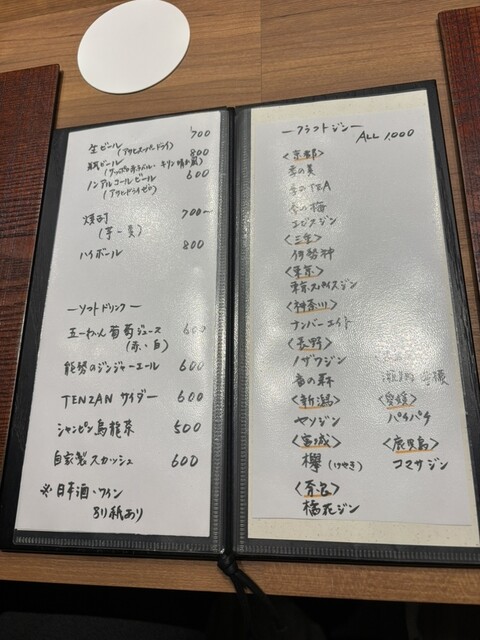 生ビール 700
(アサヒスーパードライ)
瓶ビール 800
(サッポロ赤ラベル・キリン晴れ風)
ノンアルコールビール 600
(アサヒドライゼロ)
焼酎 700〜
(芋・麦)
ハイボール 800
ーソフトドリンクー
五一わいん葡萄ジュース 600
(赤・白)
能勢のジンジャーエール 600
TENZAN サイダー 600
ジャンピン烏龍茶 500
自家製スカッシュ 600
※日本酒・ワイン
別紙あり
ークラフトジンー
ALL 1,000
<京都>
季の美
季のTEA
季の梅
エビスジン
<三重>
伊勢神
<東京>
東京スパイスジン
<神奈川>
ナンバーエイト
<長野>
ノザワジン
香の森
<新潟>
ヤソジン
<宮城>
欅(けやき)
<奈良>
橘花ジン
瀬戸内 檸檬
<愛媛>
パチパチ
<鹿児島>
コマサジン